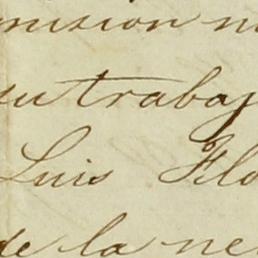 mision n
su trabaj
Luis Flo
de la ne